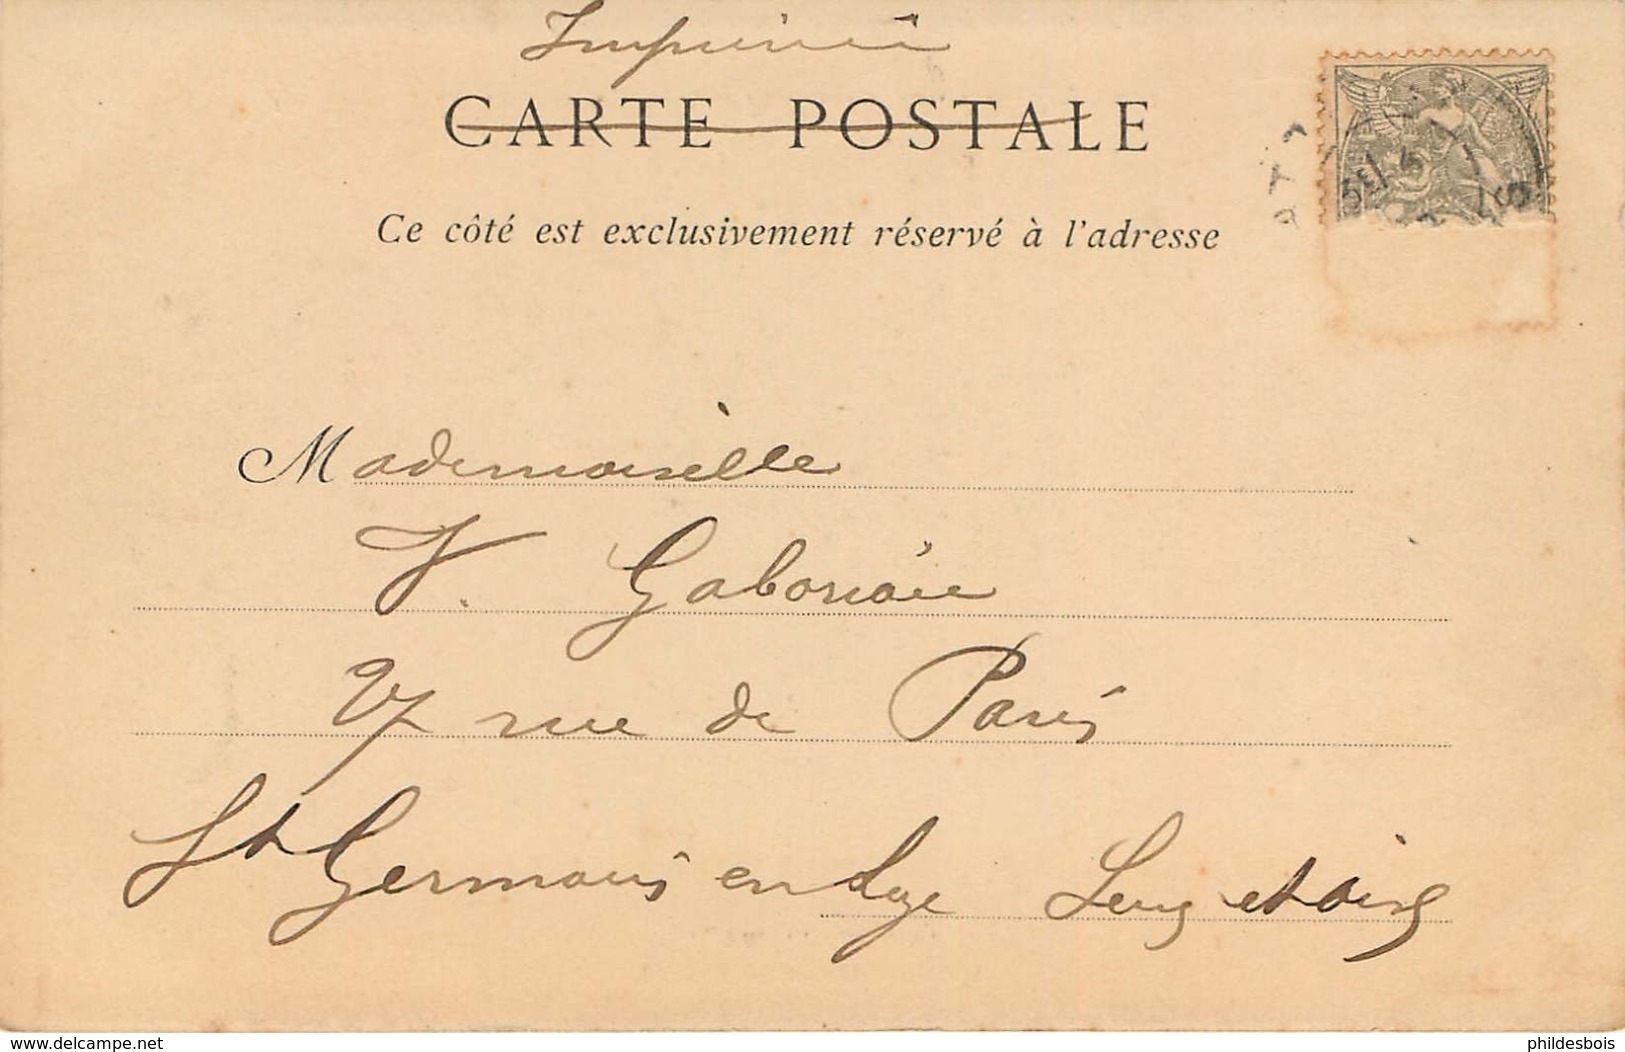 Imprimé
CARTE POSTALE
Ce côté est exclusivement réservé à l'adresse
Mademoiselle
V. Gaboriau
27 rue de Paris
St Germain en Laye Seine et Oise
www.delcampe.net
phildesbois